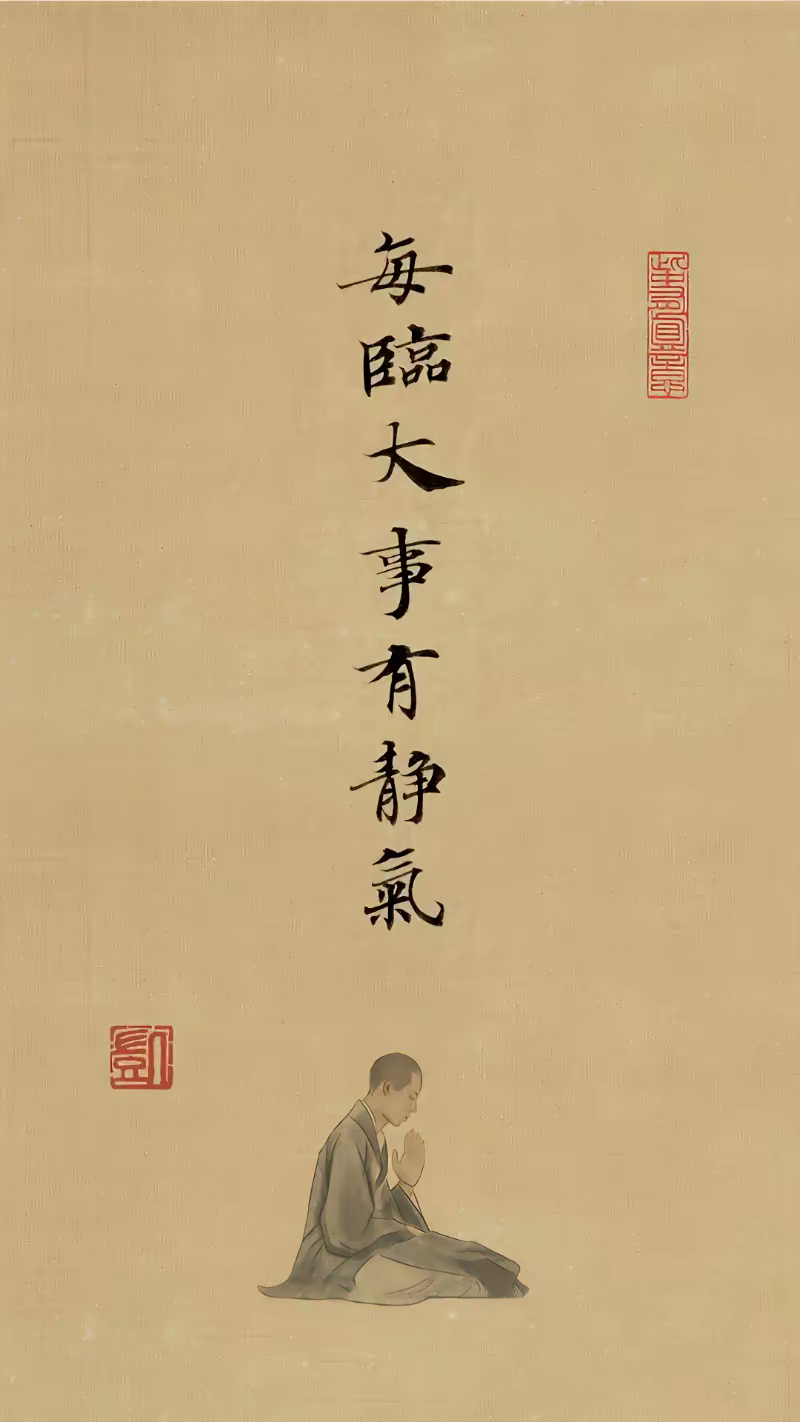 每臨大事有靜氣